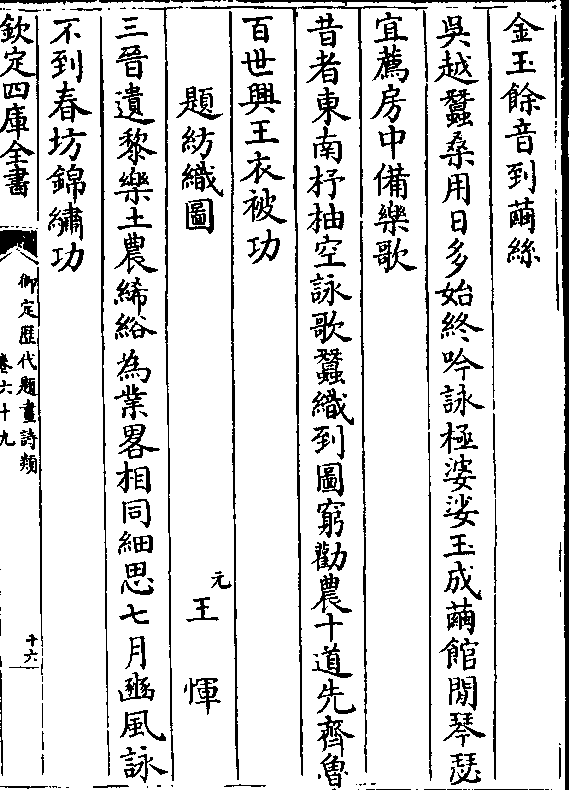 金玉餘音到繭絲
吳越蠶桑用日多始終吟詠極婆娑玉成繭館閒琴瑟
宜薦房中備樂歌
昔者東南杼柚空詠歌蠶織到圖窮勸農十道先齊魯
百世興王衣被功
題紡織圖
元王惲
三晉遺黎樂土農絺綌為業畧相同細思七月豳風詠
不到春坊錦繡功
欽定四庫全書
御定歷代題畫詩類
卷六十九
十六